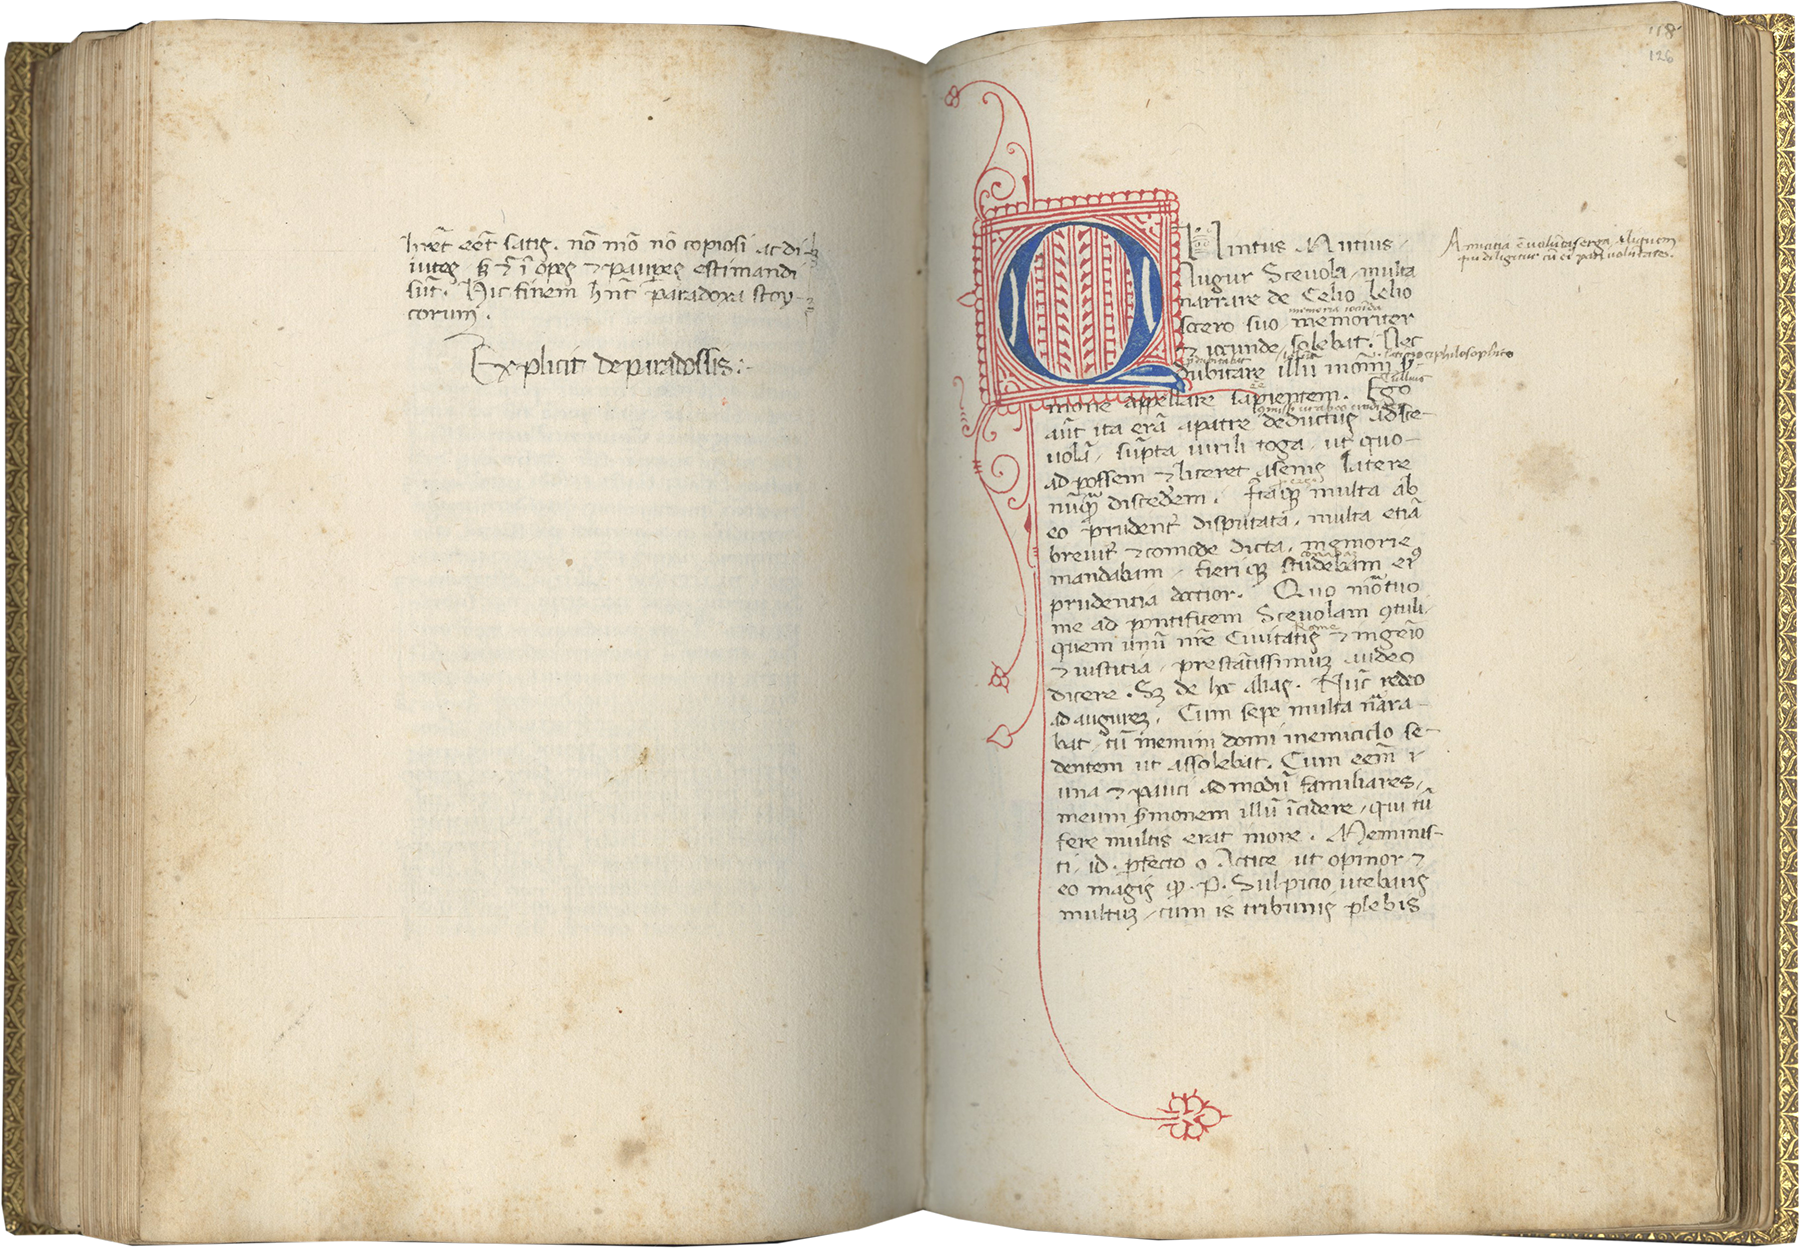 hret eēt satis. nō mō nō copiosi ac di-
uites s; ēt īopes et paupes estimandi
sūt. Hic finem hnt paradoxa stoy-
corum.
Explicit de paradossis:·
118
126
QUintus Mutius
Augur Sceuola, multa
narrare de Celio lelio
socero suo memoriter
et iocunde, solebat. Nec
dubitare illū
more appellare sapientem. Ego
aūt ita erā a patre deductus ad sce-
uolā, sūpta uirili toga, ut quo-
ad possem et liceret a senis latere
nūq̄ discederem. Itaq; multa ab
eo prudent disputata, multa etiā
breuit et comode dicta, memorie
mandabam, fieri q; studebam ei9
prudentia doctior. Quo mortuo
me ad pontificem Sceuolam 9tuli,
quem unū nre Ciuitatis et ingenio
et iusticia, prestātissimuz audeo
dicere. S; de hoc alias. Nūc redeo
ad augurez. Cum sepe multa narra-
bat, tū memini domi in emiciclo se-
dentem ut assolebat. Cum eēm
una et pauci admodū familiares,
meum sermonem illū īcidere, qui tū
fere multis erat in ore. Meminis-
ti id profecto o Attice ut opinor et
eo magis q. P. Sulpicio utebaris
multuz, cum is tribunus plebis
Amicitia ē uolūtas erga aliquem
qui diligitur cū ei pari uolūtate.